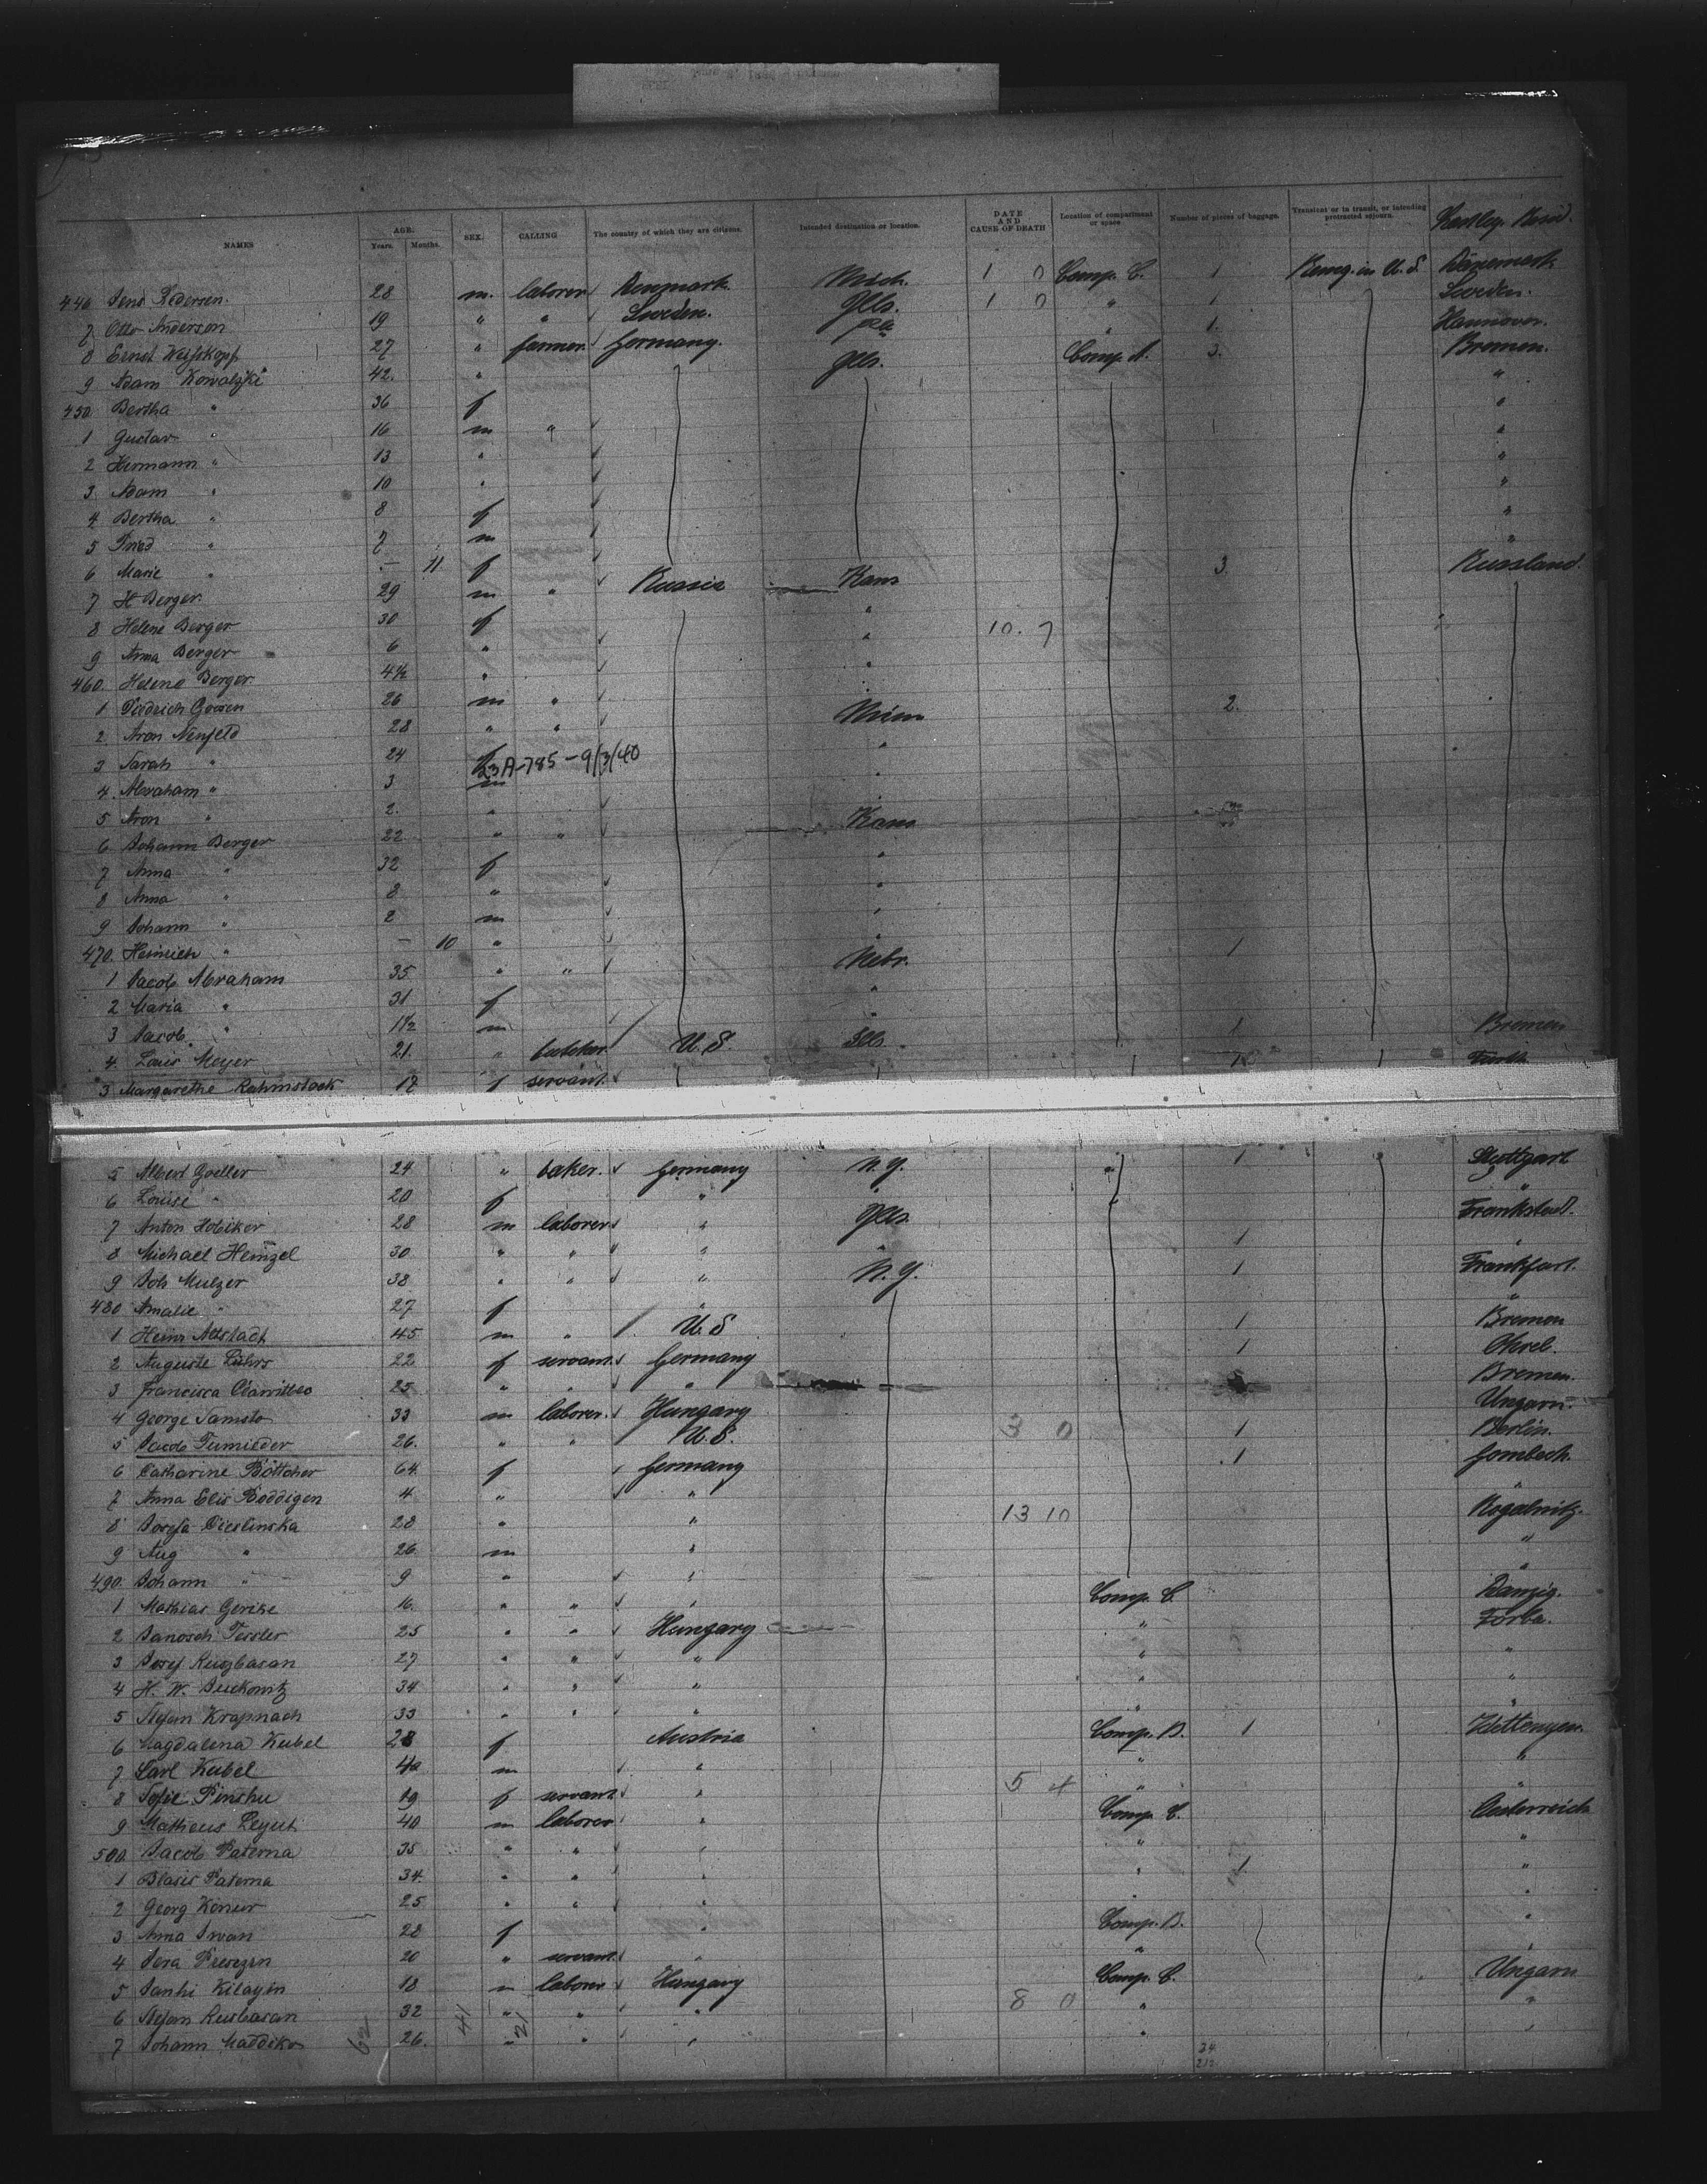 NAMES AGE. Years. Months. SEX. CALLING The country of which they are citizens. Intended destination or location. DATE AND CAUSE OF DEATH Location of compartment or space Number of pieces of baggage. Transient or in transit, or intending protracted sojourn.
446 Jens Pedersen. 28 m. laborer Denmark. Mich. 1 0 Comp. C. 1 Remg. in U.S. Dänemark
7 Otto Anderson 19 " " Sweden. Ills. 1 0 " 1 Sweden.
8 Ernst 27 " farmer. Germany. Pa " 1. Hannover.
9 Adam Kowalzki 42. " Ills. Comp. A. 3. Bremen.
450 Bertha " 36 f "
1 Gustav " 16 m " "
2 Hermann " 13 " "
3 Adam " 10 " "
4 Bertha " 8 f "
5 Fried " 7 m "
6 Marie " - 11 f "
7 H Berger. 29 m " Russia Kans 3. Russland.
8 Helene Berger 30 f "
9 Anna Berger 6 " " 10. 7
460. Helene Berger. 4½ " "
1 Goosen 26 m " "
2 Aron Neufeld 28 " " Minn 2.
3 Sarah " 24 f "
23A-785-9/3/40
4 Abraham " 3 m "
5 Aron " 2. " "
6 Johann Berger 22 " " Kans
7 Anna " 32 f "
8 Anna " 8 " "
9 Johann " 2 m "
470. Heinrich " - 10 " "
1 Jacob Abraham 35 " " Nebr. 1
2 Maria " 31 f "
3 Jacob " 1½ m "
4 Louis Meyer 21. " butcher U.S. Ills 1 Bremen
3 Margarethe Rahmstock 17 f servant.
5 Albert Goeller 24 " baker. Germany N.Y. 1 Stuttgart
6 Louise " 20 f " " "
7 Anton 28 m laborer " Ills
8 Michael 30 " " " " 1 "
9 Joh Mulzer 38 " " " N.Y. 1 Frankfurt.
480 Amalie " 27 f " "
1 Heinr 45 m " U.S 1 Bremen
2 Auguste Lührs 22 f servant. Germany 1
3 Francisca 25 " " " Bremen.
4 George 33 m laborer. Hungary Ungarn.
5 Jacob 26. " " U.S. 3 0 1 Berlin.
6 Catharine Böttcher 64 f Germany 1
7 Anna Elis Boddigen 4 " " "
8 28 " " 13 10
9 Aug " 26 m " "
490. Johann " 9 " " "
1 Mathias 16. " " " Comp. C. Danzig.
2 25 " " Hungary "
3 Josef 27 " " " " "
4 H. W. 34 " " " " "
5 Stefan 33 " " " " "
6 Magdalena Kubel 28 f Austria Comp. B. 1
7 Carl Kubel m " " "
8 Sofie 19 f servant " 5 4 " "
9 Matheus 40 m laborer " Comp. C. Oesterreich
500. Jacob Paterna 35 " " " " "
1 Blasis Paterna 34. " " " " 1 "
2 Georg 25 " " " " "
3 Anna Ivan 28 f " Comp. B. "
4 20 " servant " " "
5 18 m laborer Hungary Comp. C. Ungarn
6 Stefan 32 " " " 8 0 " "
7 Johann 26. " " " " "
62 41 21 34